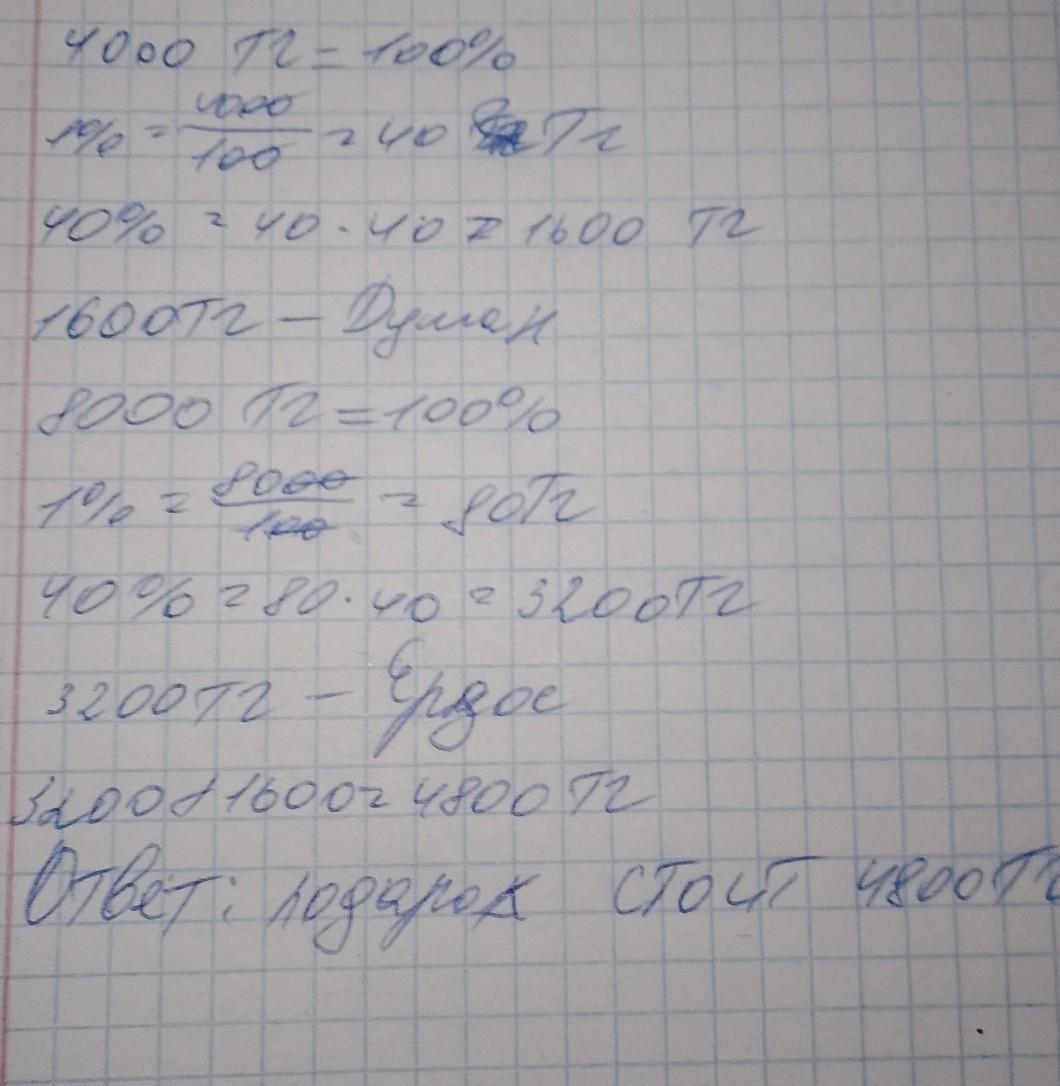 4000 тг = 100%
1% = 4000/100 = 40 тг
40% = 40 · 40 = 1600 тг
1600тг – Думан
8000 тг = 100%
1% = 8000/100 = 80тг
40% = 80 · 40 = 3200тг
3200тг – Ердос
3200+1600=4800 тг
Ответ: подарок стоит 4800тг